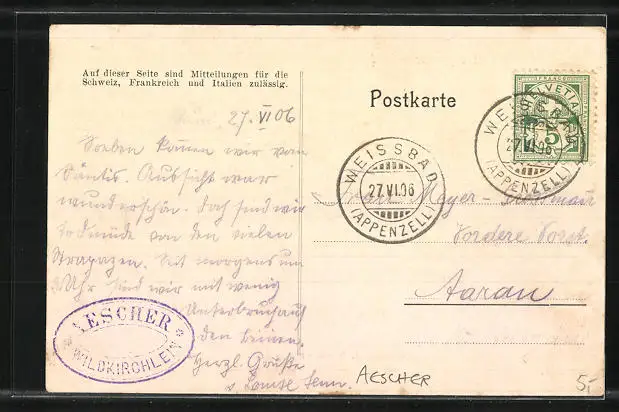 Auf dieser Seite sind Mitteilungen für die
Schweiz, Frankreich und Italien zulässig.
Postkarte
27. VI 06
Soeben kommen wir vom
Säntis. Aussicht war
wunderschön. Doch sind wir
todmüde von den vielen
Strapazen. Seit morgens um
Uhr sind wir mit wenig
Unterbruch auf
den Beinen.
Herzl. Grüße
AESCHER
WILDKIRCHLEIN
AESCHER
WEISSBAD
27.VI.06
(APPENZELL)
HELVETIA
FRANCO
5
WEISSBAD
27.VI.06
(APPENZELL)
Frau Meyer-
Vordere Vorst.
Aarau
5.-